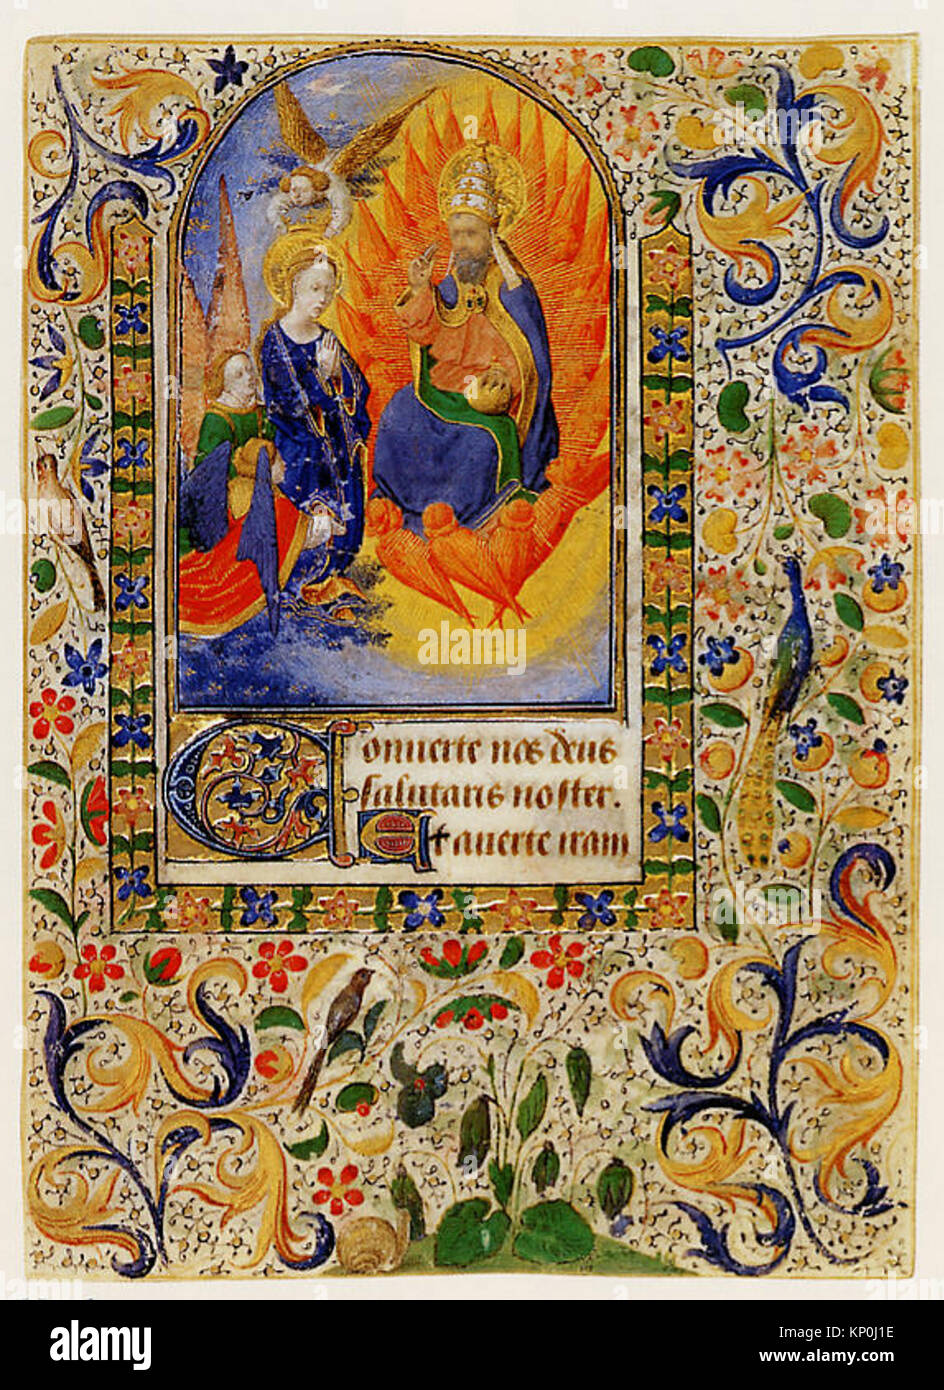 Conuerte nos deus
salutaris noster.
Et auerte iram
alamy
Image ID: KP0J1E
www.alamy.com